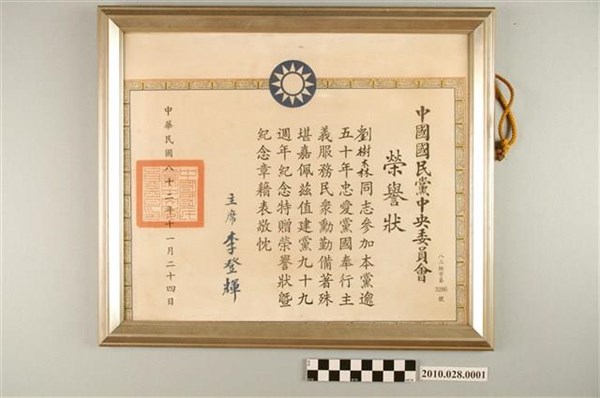 中國國民黨中央委員會
榮譽狀
八二組榮字第
3286
號
劉樹森同志參加本黨逾
五十年忠愛黨國奉行主
義服務民眾勳勤備著殊
堪嘉佩茲值建黨九十九
週年紀念特贈榮譽狀暨
紀念章藉表敬忱
主席 李登輝
中華民國八十二年十一月二十四日
2010.028.0001